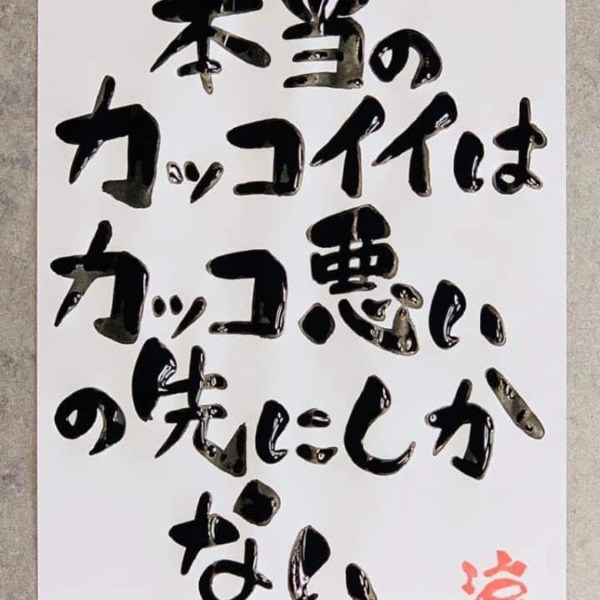 本当の
カッコイイは
カッコ悪い
の先にしか
ない
涼